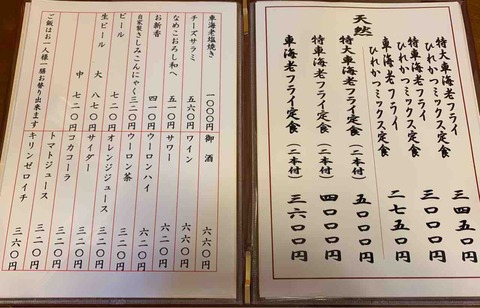 天然
特大車海老フライ
ひれかつミックス定食 三四五〇円
特車海老フライ
ひれかつミックス定食 三〇〇〇円
車海老フライ
ひれかつミックス定食 二七五〇円
特大車海老フライ定食(二本付) 五〇〇〇円
特車海老フライ定食(二本付) 四〇〇〇円
車海老フライ定食(二本付) 三六〇〇円
車海老塩焼き 一〇〇〇円
チーズサラミ 五六〇円
なめこおろし和へ 五一〇円
お新香 四一〇円
自家製さしみこんにゃく 三二〇円
ビール 七二〇円
生ビール 大 八七〇円
中 七二〇円
ご飯はお一人様一膳お替り出来ます
御酒 六六〇円
ワイン 六六〇円
サワー 六六〇円
ウーロンハイ 六二〇円
ウーロン茶 三二〇円
オレンジジュース 三二〇円
サイダー 三二〇円
コカコーラ 三二〇円
トマトジュース 三二〇円
キリンゼロイチ 三六〇円